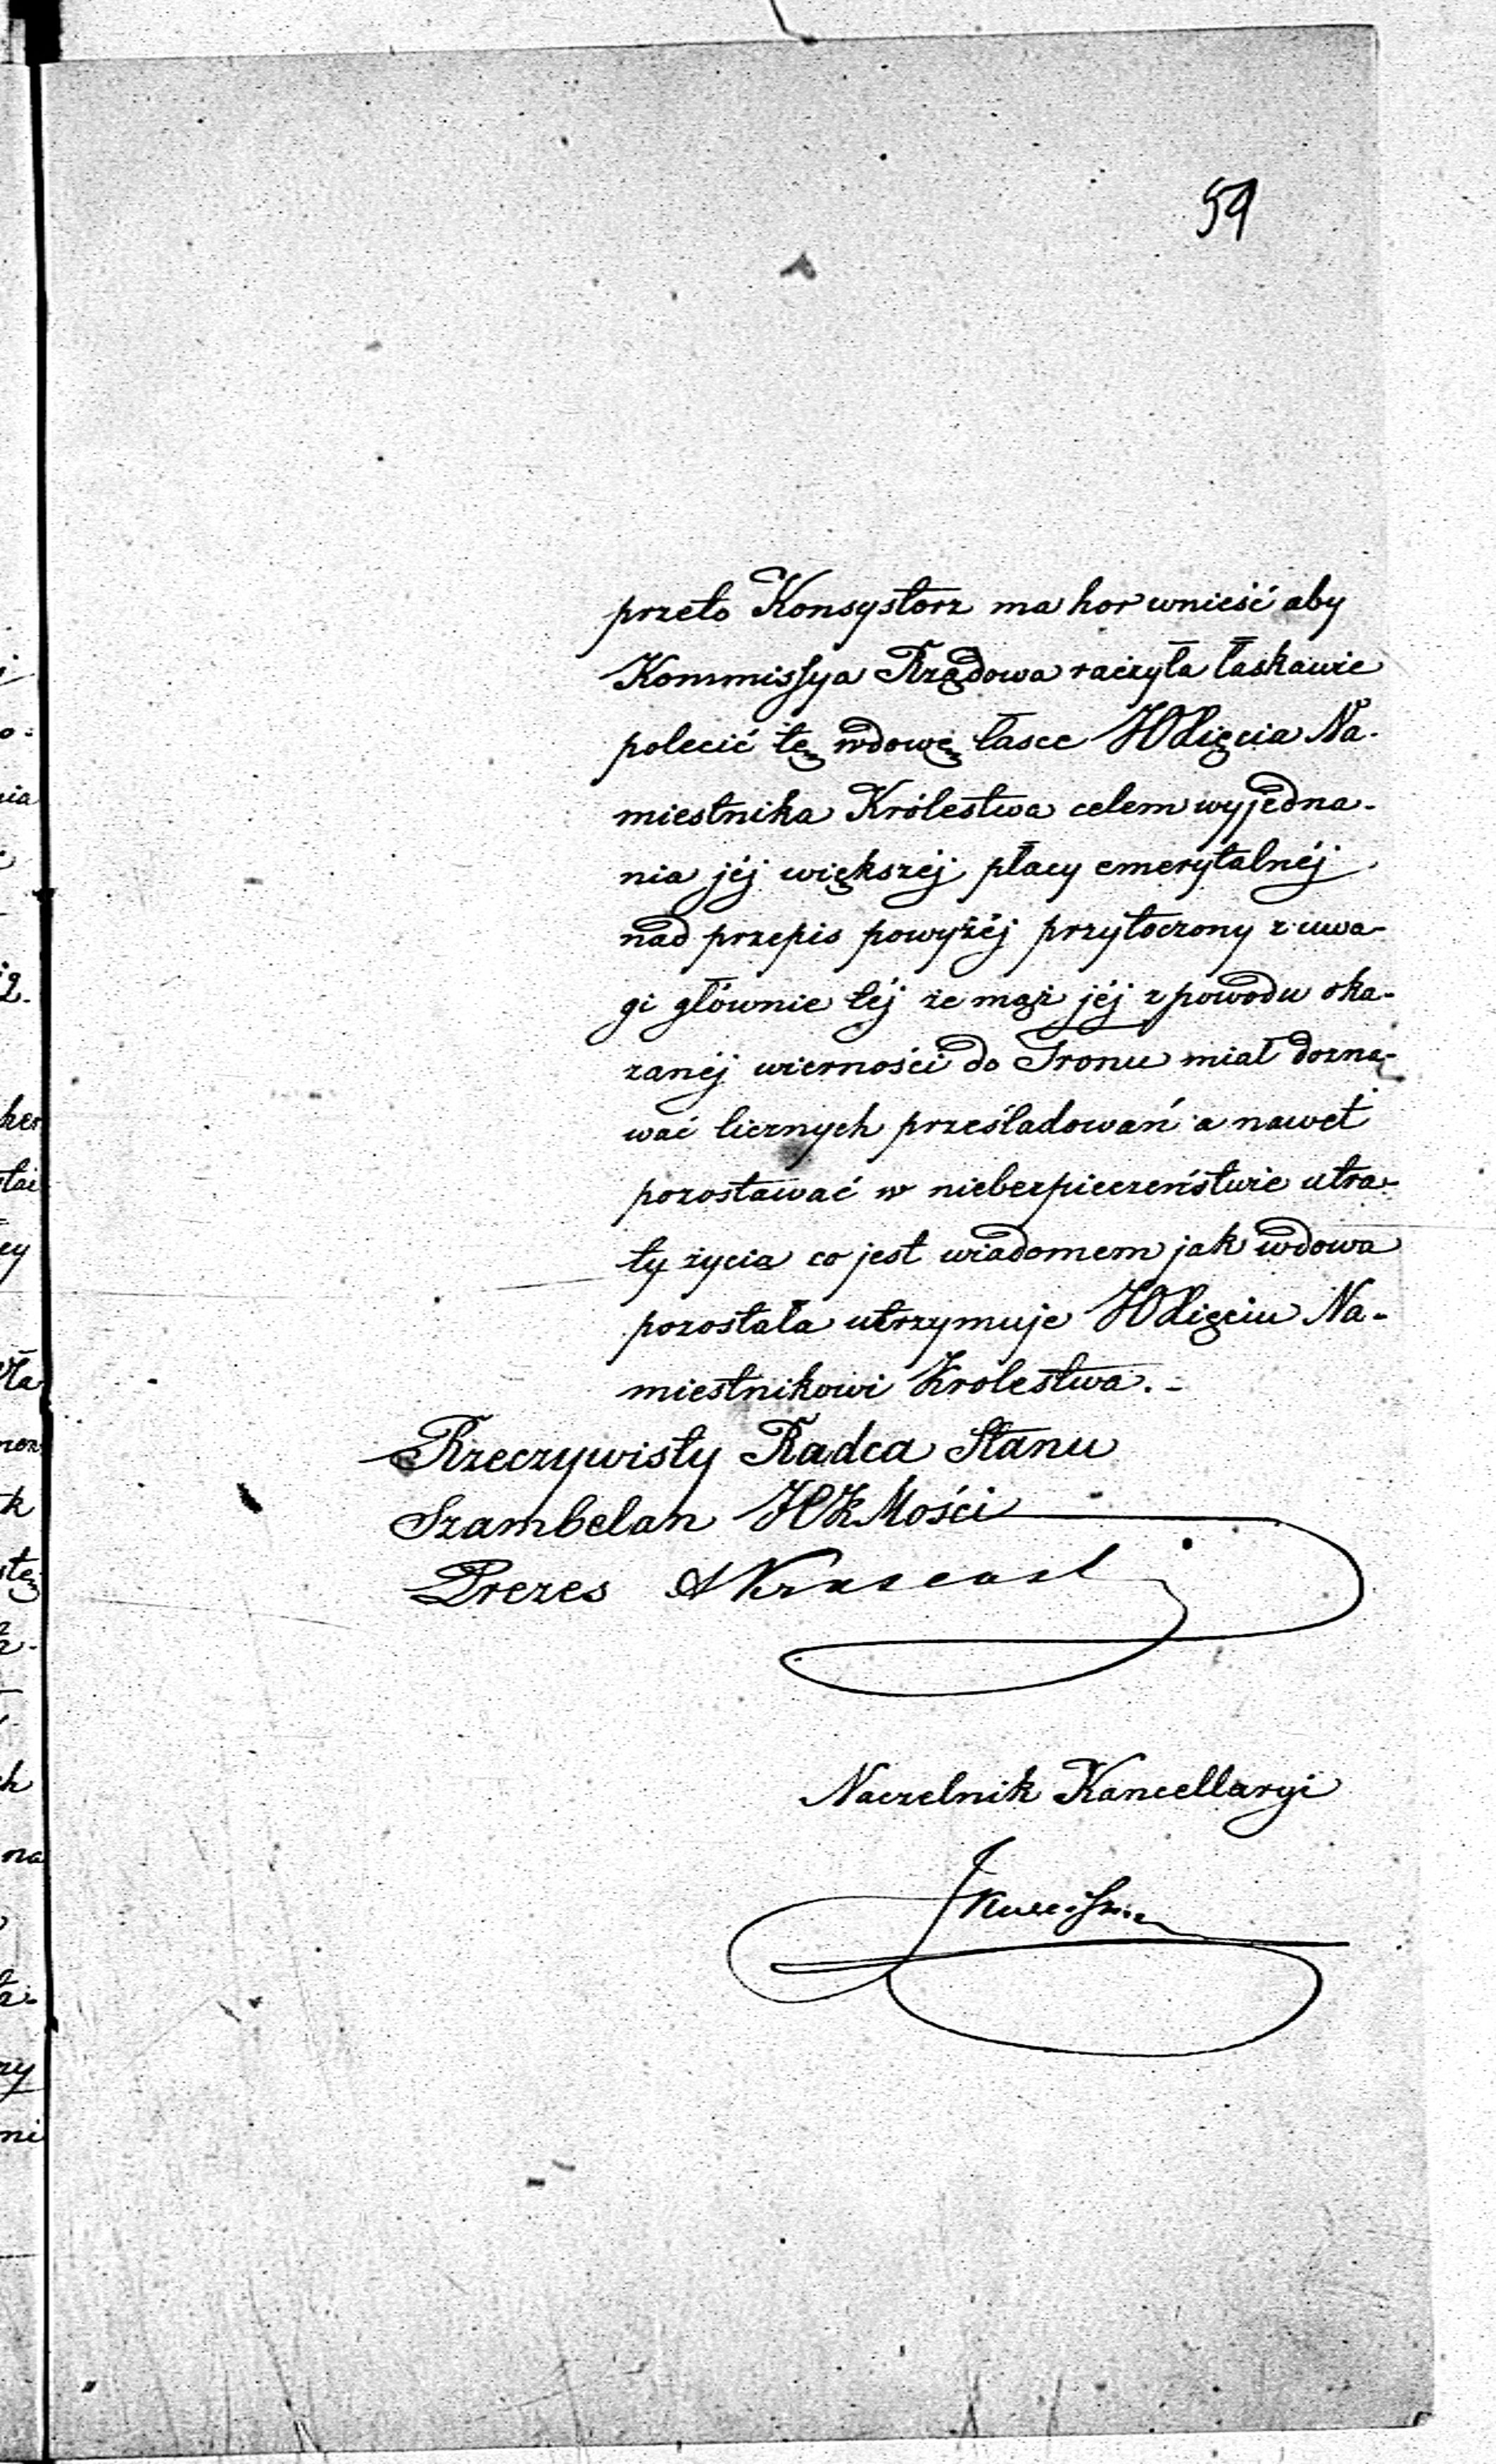 59
przeto Konsystorz ma hor wnieść aby
Kommissya Rządowa raczyła łaskawie
polecić tę wdowę łasce JO Xięcia Na-
miestnika Królestwa celem wyjedna-
nia jéj większéj płacy emerytalnéj
nad przepis powyżéj przytoczony z uwa-
gi głównie téj że mąż jéj z powodu oka-
zanéj wierności do Tronu miał dozna-
wać licznych prześladowań a nawet
pozostawać w niebezpieczeństwie utra-
ty życia co jest wiadomem jak wdowa
pozostała utrzymuje JO Xięciu Na-
miestnikowi Królestwa.-
Rzeczywisty Radca Stanu
Szambelan JCK Mości
Prezes
Naczelnik Kancellaryi